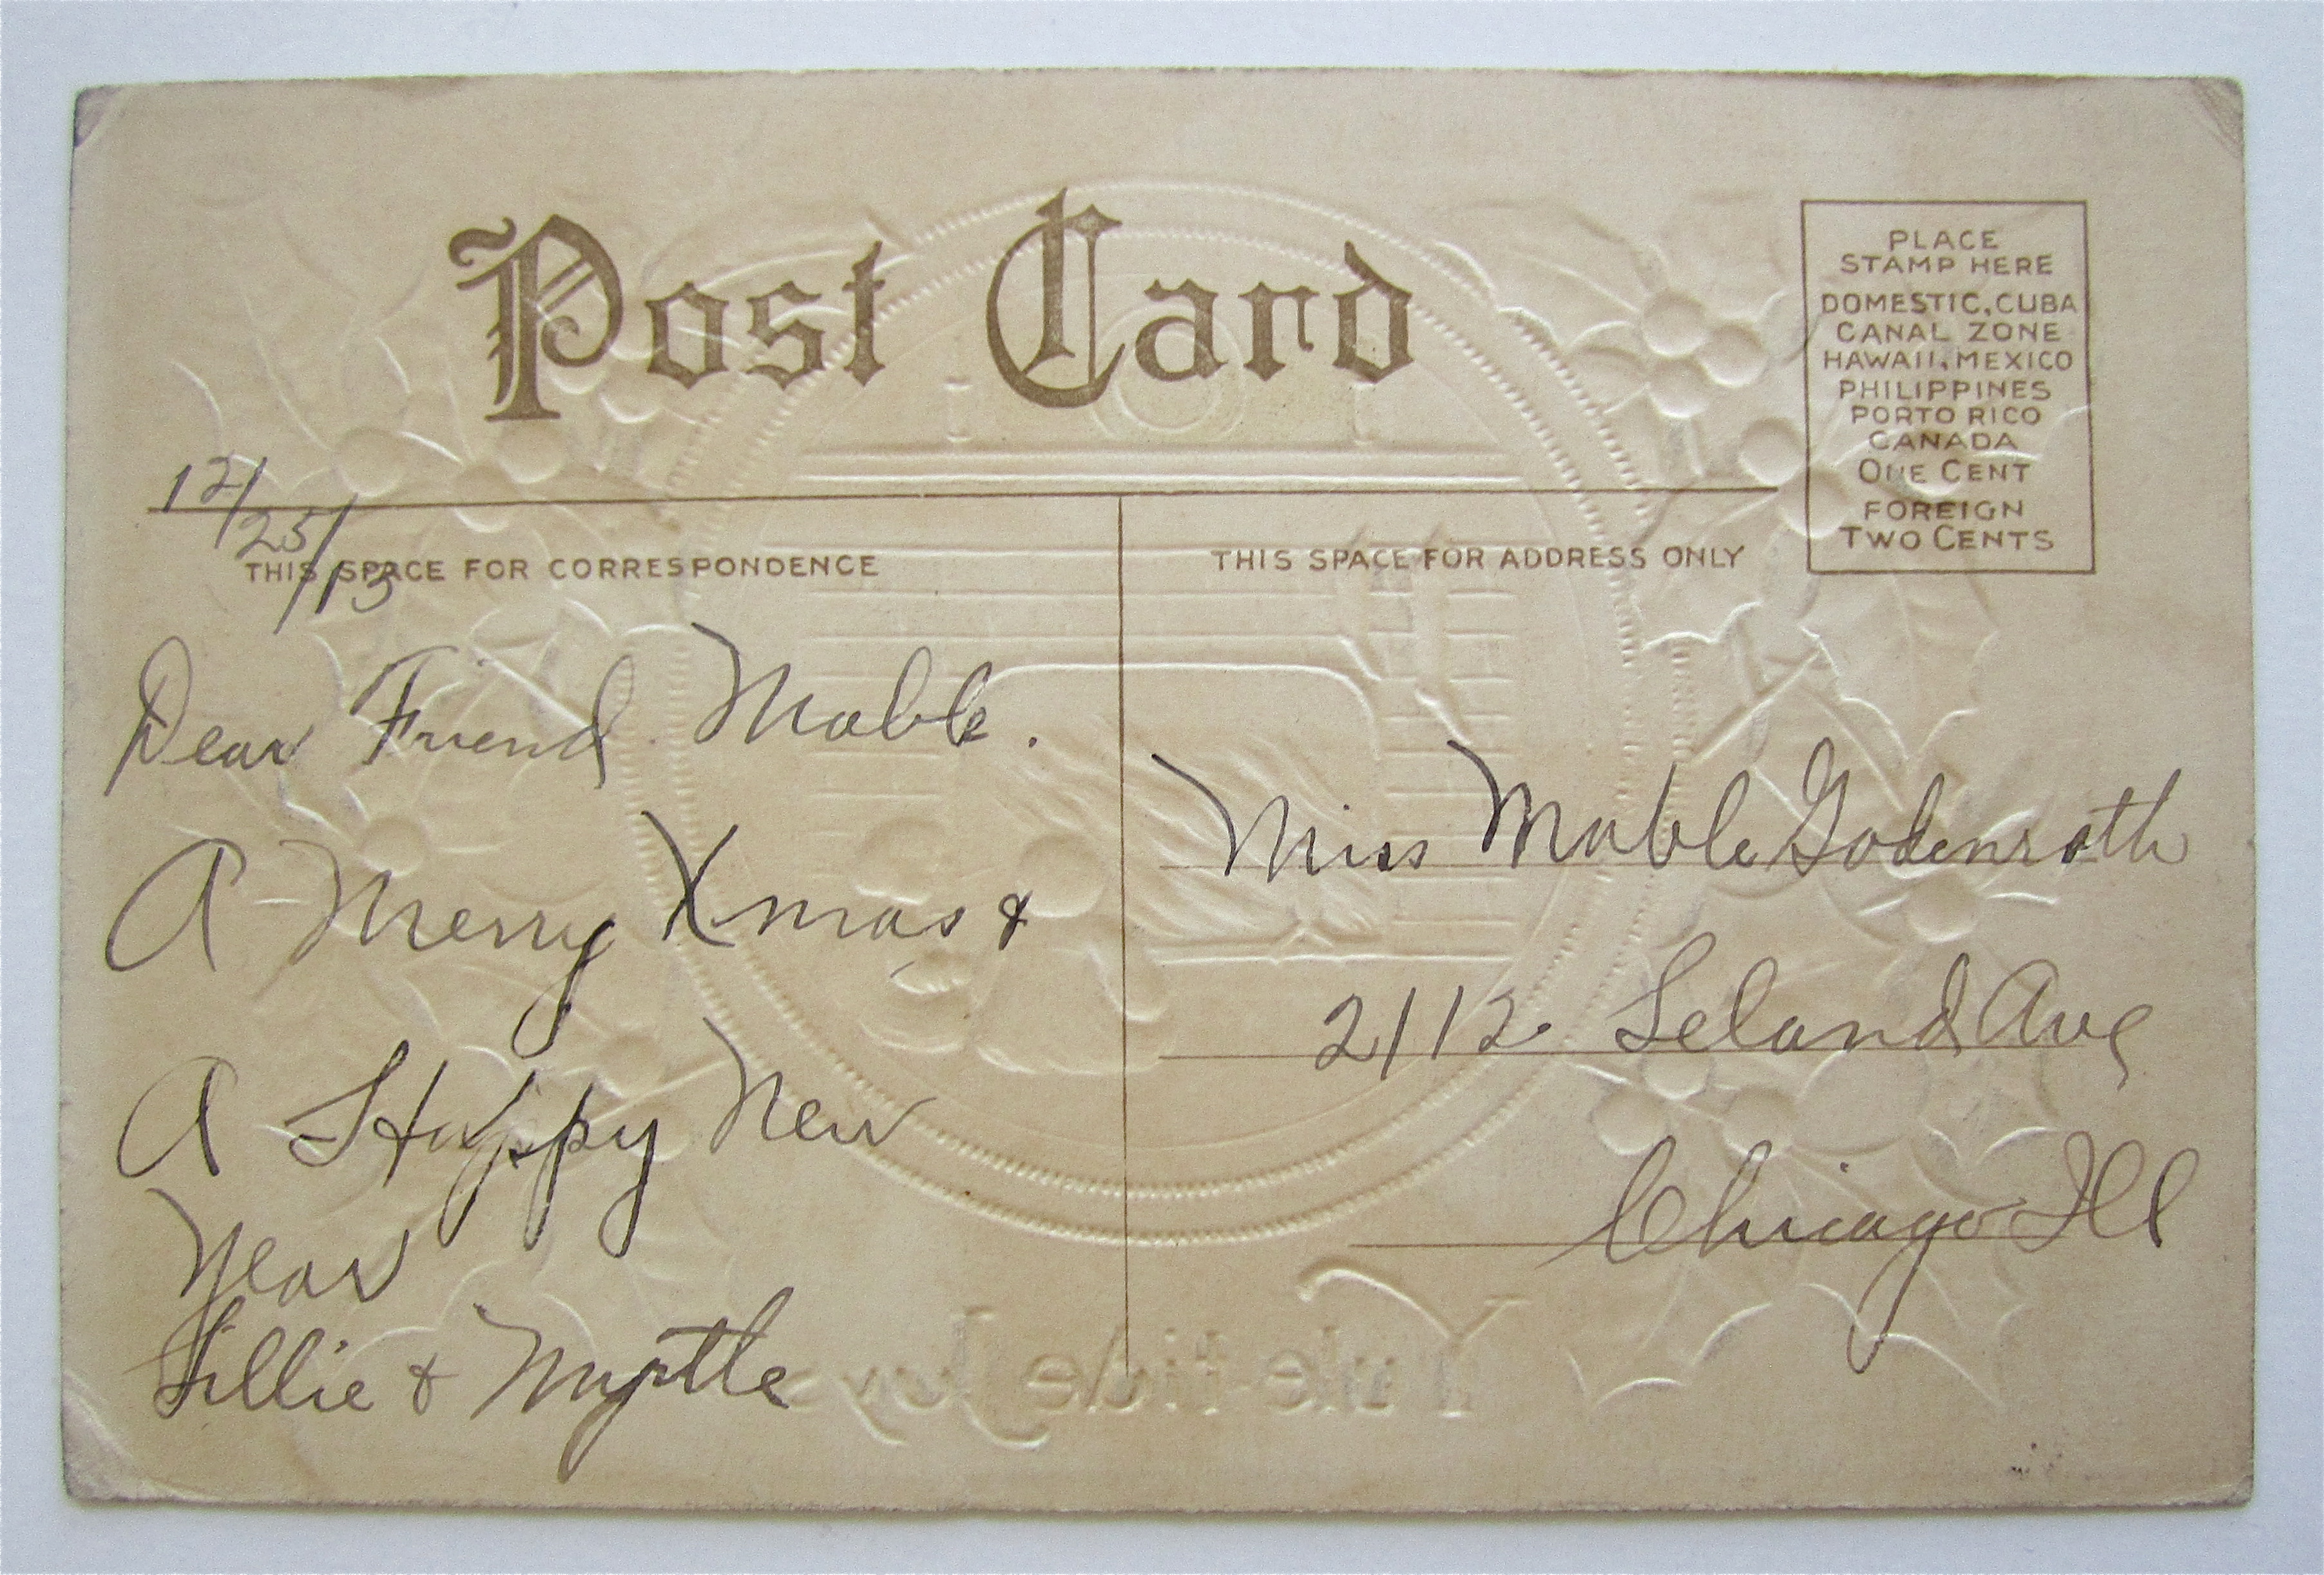 Post Card
PLACE
STAMP HERE
DOMESTIC, CUBA
CANAL ZONE
HAWAII, MEXICO
PHILIPPINES
PORTO RICO
CANADA
ONE CENT
FOREIGN
TWO CENTS
12/
25/
/13
THIS SPACE FOR CORRESPONDENCE
THIS SPACE FOR ADDRESS ONLY
Dear Friend Mable.
A Merry Xmas &
A Happy New
Year
Lillie & Myrtle
Miss Mable Godenrath
2112 Leland Ave
Chicago Ill
Yule-tide Joys